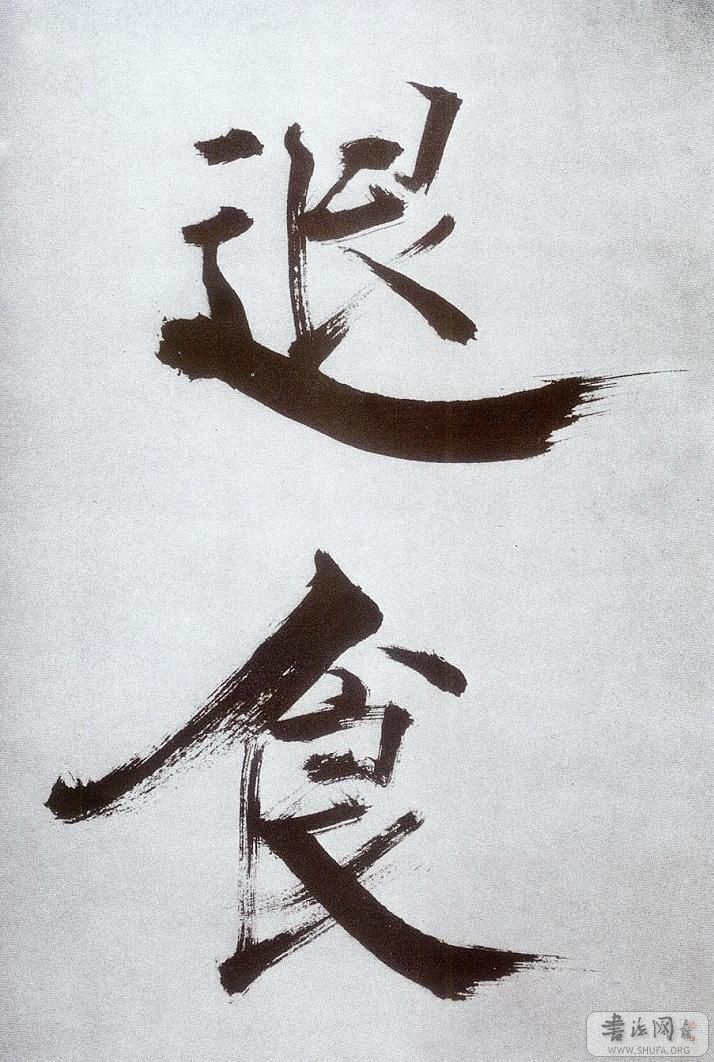 退
食
书法网
WWW.SHUFA.ORG